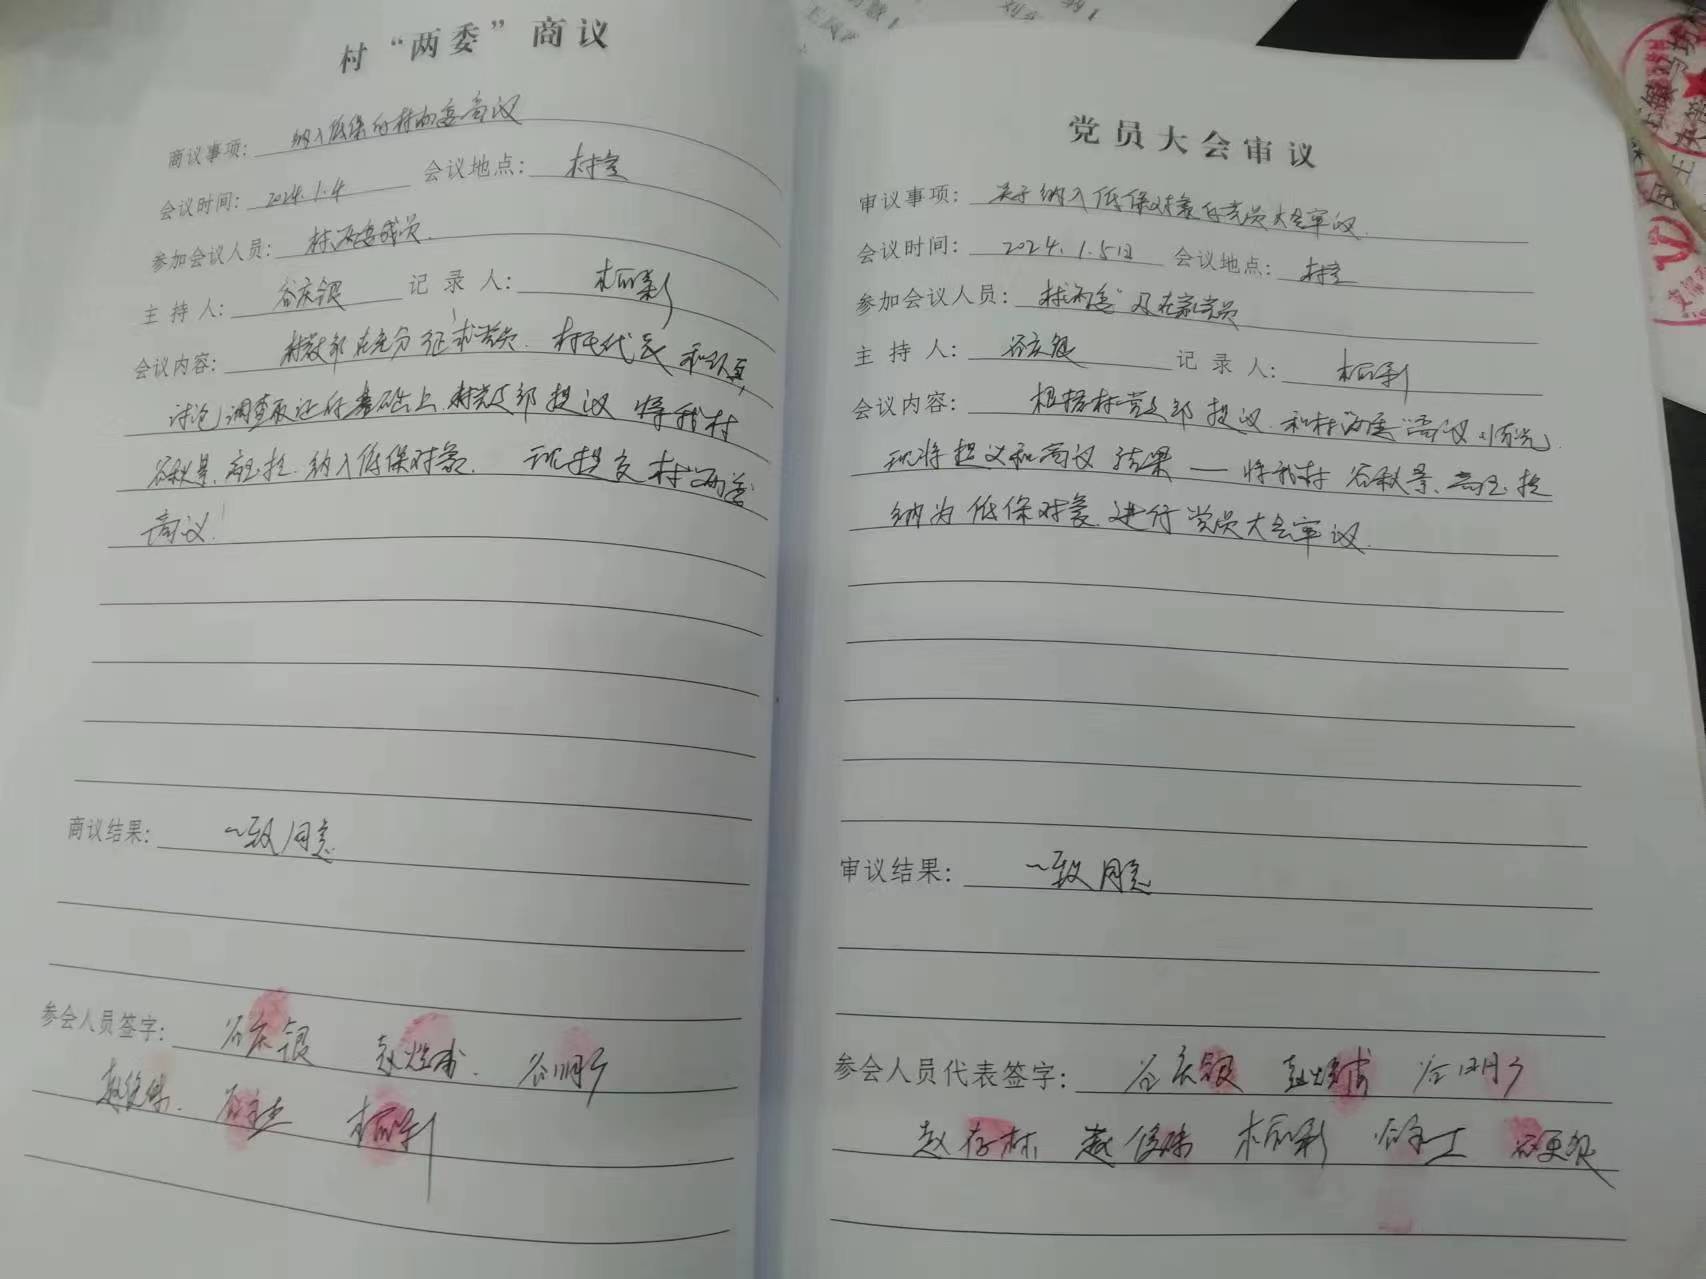 村“两委”商议
商议事项： 纳入低保的村两委商议
会议时间： 2024.1.4 会议地点： 村室
参加会议人员： 村两委成员.
主持人： 谷庆银 记录人：
会议内容： 村支部在充分征求党员、村民代表和认真
讨论,调查取证的基础上,村党支部提议 将我村
谷秋景、 纳入低保对象. 现提交村“两委
商议.
商议结果： 一致同意
参会人员签字： 谷庆银
党员大会审议
审议事项： 关于纳入低保对象的党员大会审议.
会议时间： 2024.1.5日 会议地点： 村室
参加会议人员： 村“两委”及在家党员
主持人： 谷庆银 记录人：
会议内容： 根据村党支部提议.和村两委商议情况.
现将提议和商议结果——将我村 谷秋景、
纳为低保对象.进行党员大会审议.
审议结果： 一致同意
参会人员代表签字： 谷庆银
赵存林